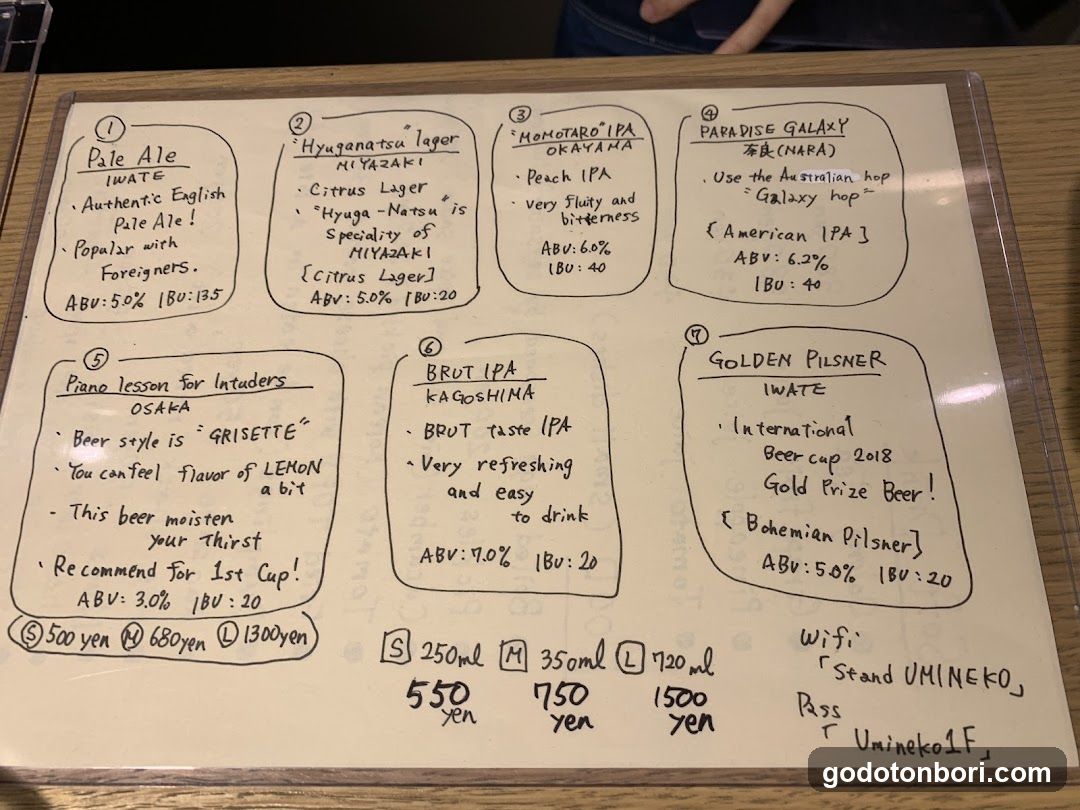 ①
Pale Ale
IWATE
・Authentic English
Pale Ale!
・Popular with
Foreigners.
ABV:5.0% IBU:135
②
"Hyuganatsu" lager
MIYAZAKI
・Citrus Lager
・"Hyuga-Natsu" is
speciality of
MIYAZAKI
[Citrus Lager]
ABV:5.0% IBU:20
③
"MOMOTARO" IPA
OKAYAMA
・Peach IPA
・Very fluity and
bitterness
ABV:6.0%
IBU:40
④
PARADISE GALAXY
奈良(NARA)
・Use the Australian hop
"Galaxy hop"
[American IPA]
ABV:6.2%
IBU:40
⑤
Piano lesson for Intuders
OSAKA
・Beer style is "GRISETTE"
・You can feel flavor of LEMON
a bit
- This beer moisten
your Thirst
・Recommend for 1st Cup!
ABV:3.0% IBU:20
Ⓢ500yen Ⓜ680yen Ⓛ1300yen
⑥
BRUT IPA
KAGOSHIMA
・BRUT taste IPA
・Very refreshing
and easy
to drink
ABV:7.0% IBU:20
⑦
GOLDEN PILSNER
IWATE
・International
Beer cup 2018
Gold Prize Beer!
[Bohemian Pilsner]
ABV:5.0% IBU:20
S 250ml M 350ml L 720ml
550 yen 750 yen 1500 yen
Wifi
「Stand UMINEKO」
Pass
「Umineko1F」
godotonbori.com